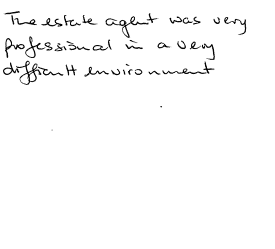 The estate agent was very
professional in a very
difficult environment